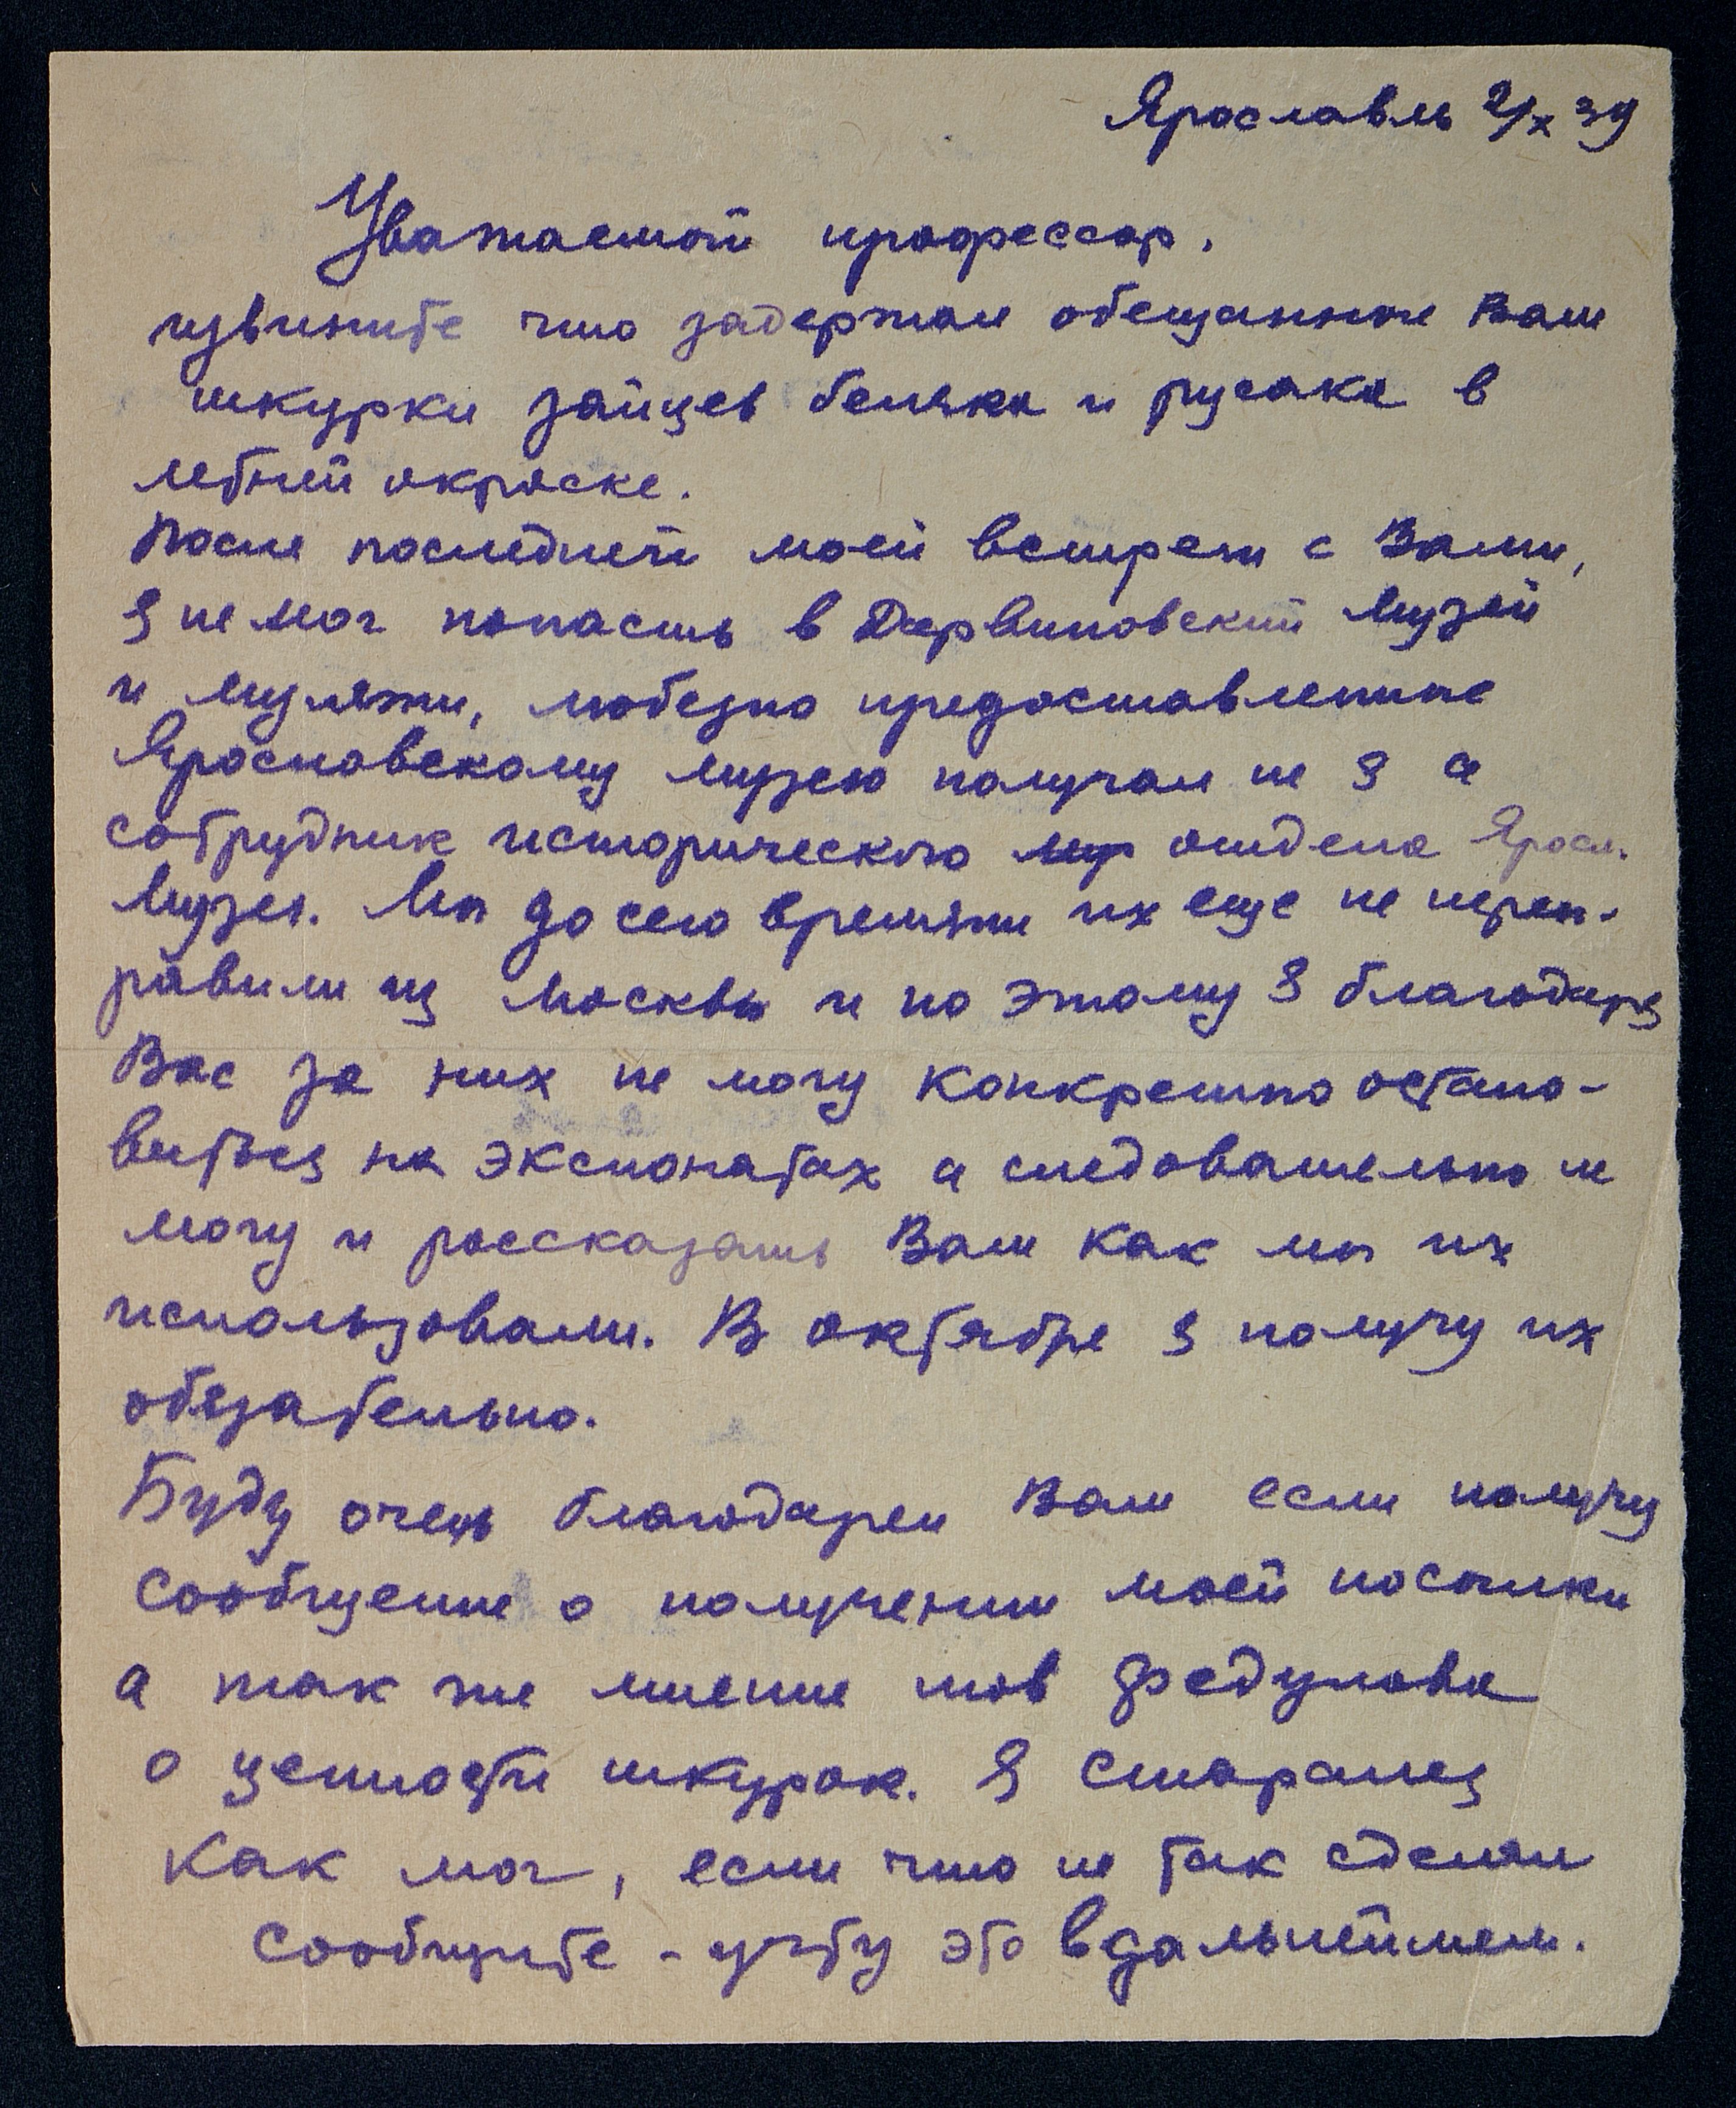 Ярославль 2/X 39
Уважаемой профессор.
извините что задержал обещанные Вам
шкурки зайцев беляка и русака в
летней окраске.
После последней моей встречи с Вами,
я не мог попасть в Дарвиновский музей
и муляжи, любезно предоставленные
Ярославскому музею получал не я а
сотрудник исторического отдела Яросл.
музея. Мы до сего времени их еще не переп-
равили из Москвы и по этому я благодаря
Вас за них не могу конкретно остано-
виться на экспонатах а следовательно не
могу и рассказать Вам как мы их
использовали. В октябре я получу их
обязательно.
Буду очень благодарен Вам если получу
сообщение о получении моей посылки
а так же мнение тов Федулова
о ценности шкурок. Я старался
как мог, если что не так сделал
сообщите - учту это в дальнейшем.